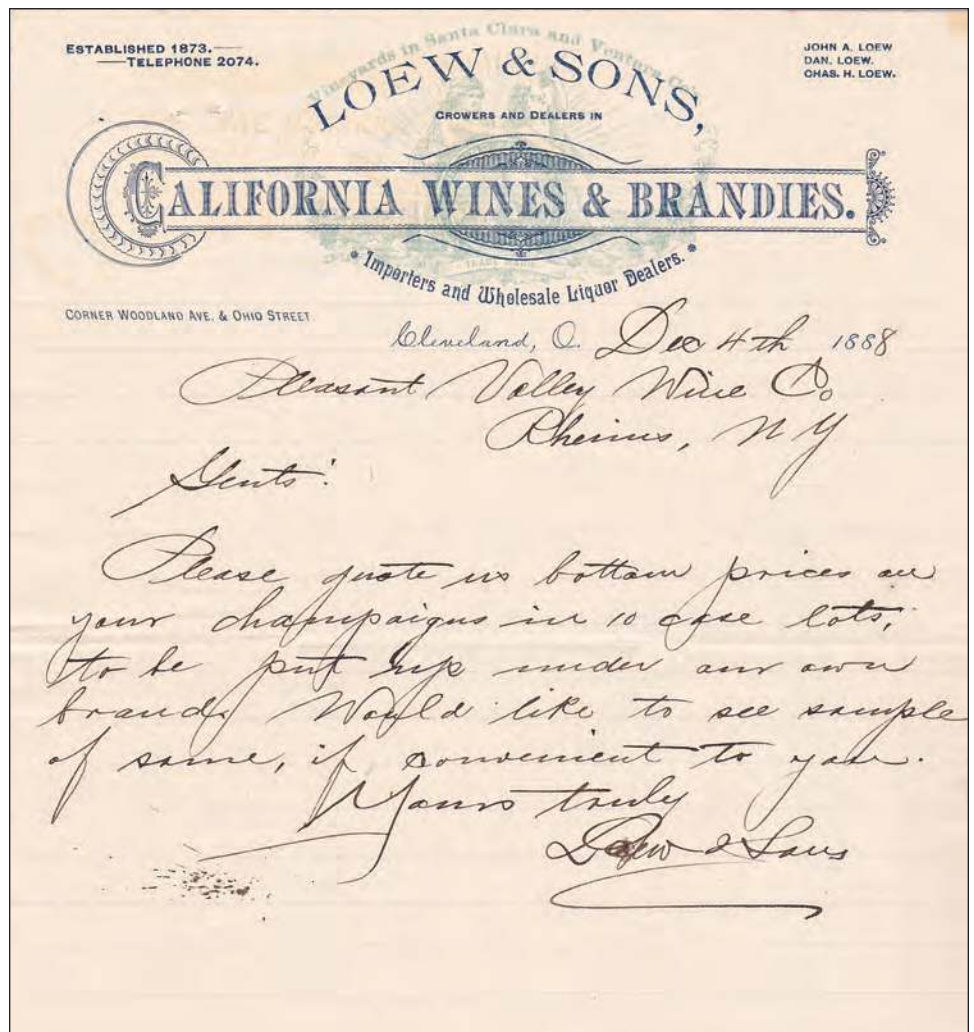 ESTABLISHED 1873.
TELEPHONE 2074.
JOHN A. LOEW
DAN. LOEW.
CHAS. H. LOEW.
Vineyards in Santa Clara and Ventura Co.
LOEW & SONS,
CROWERS AND DEALERS IN
CALIFORNIA WINES & BRANDIES.
TRADE MARK
Importers and Wholesale Liquor Dealers.
CORNER WOODLAND AVE. & OHIO STREET
Cleveland, O. Dec 4th 1888
Pleasant Valley Wine Co
Rheims, N Y
Gents:
Please quote us bottom prices on
your champaigns in 10 case lots,
to be put up under our own
brand. Would like to see sample
of same, if convenient to you.
Yours truly
Loew & Sons